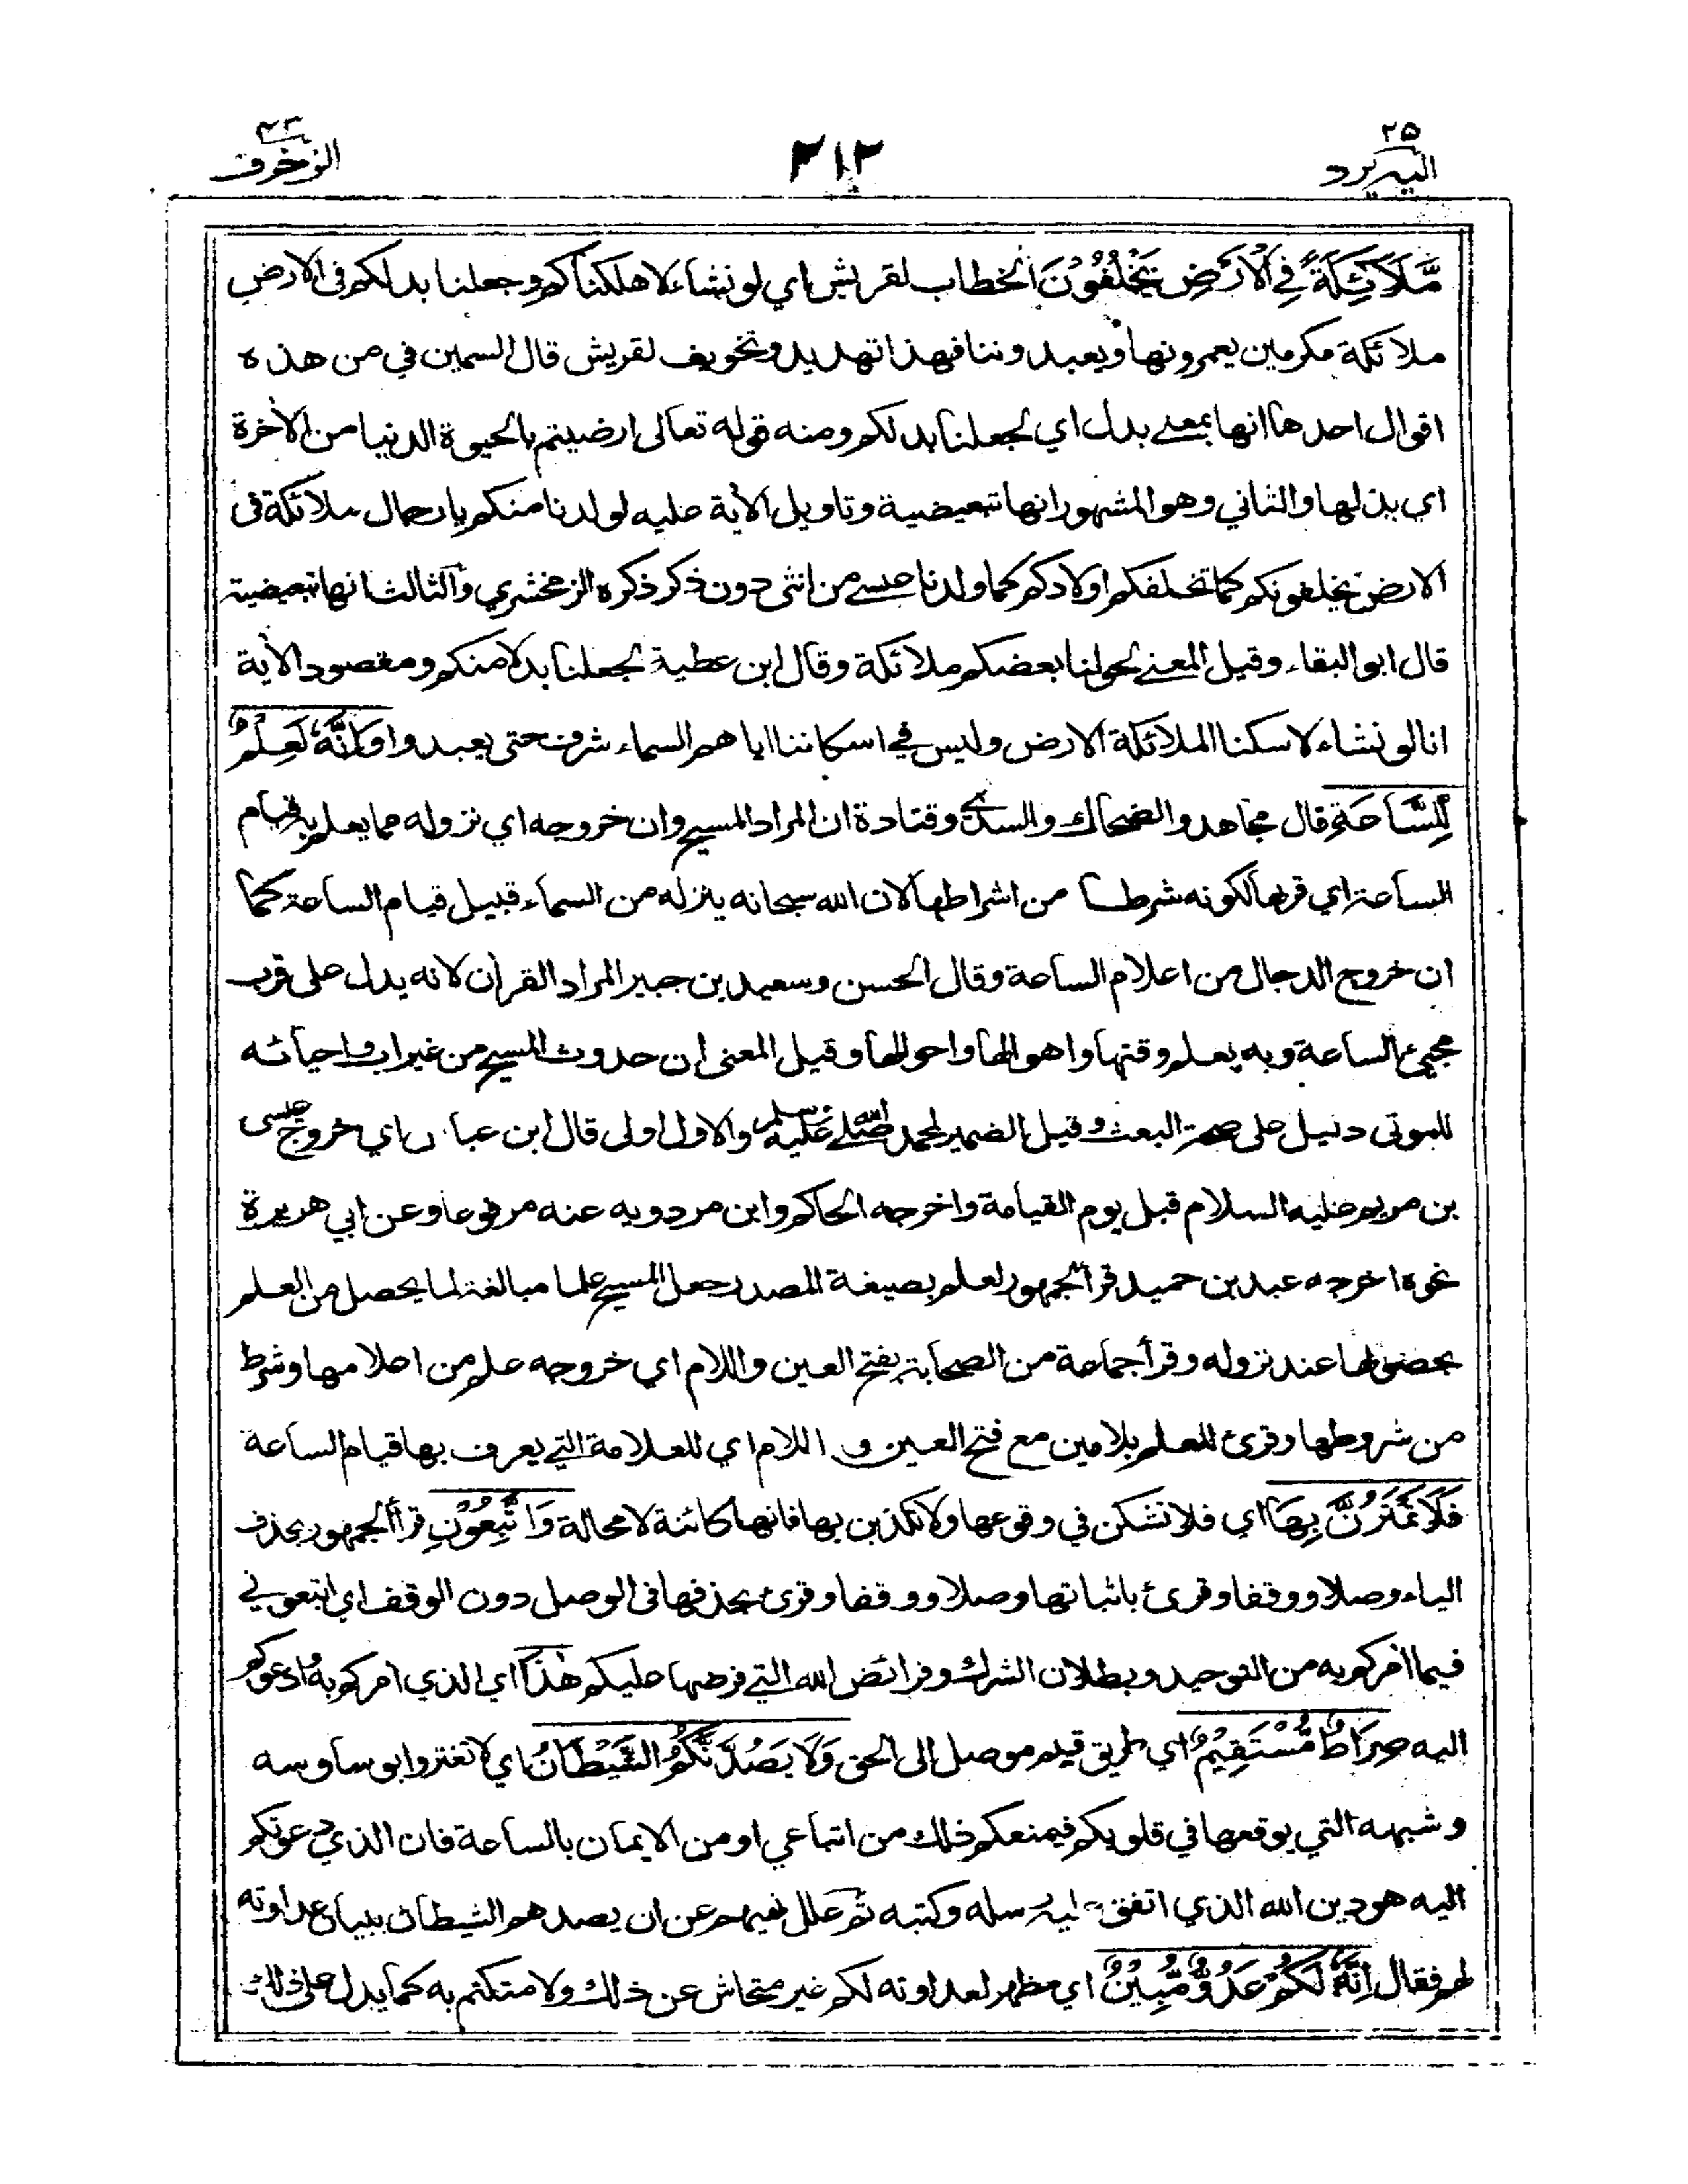 ٢٥
اليه يرد
٣١٢
٤٣
الزخرف
مَّلَآئِكَةً فِي الْأَرْضِ يَخْلُفُوْنَ الخطاب لقريش اي لو نشاء لاهلكناكم وجعلنا بدلكم فى الارض
ملائكة مكرمين يعمرونها ويعبدوننا فهذا تهديد وتخويف لقريش قال السمين في من هذه
اقوال احدها انها بمعنے بدل اي لجعلنا بدلكم ومنه قوله تعالى ارضيتم بالحيوة الدنيا من الأخرة
اي بدلها والثاني وهو المشهور انها تبعيضية وتاويل الأية عليه لولدنا منكم يا رجال ملائكة فى
الارض يخلفونكم كما تخلفكم اولادكم كما ولدنا عيسے من انثى دون ذكر ذكره الزمخشري والثالث انها تبعيضية
قال ابو البقاء وقيل المعنے لحولنا بعضكم ملائكة وقال ابن عطية لجعلنا بدلا منكم ومقصود الأية
انا لو نشاء لاسكنا الملائكة الارض وليس في اسكاننا اياهم السماء شرف حتى يعبدوا وَاِنَّهٗ لَعِلْمٌ
لِّلسَّاعَةِ قال مجاهد والضحاك والسدي وقتادة ان المراد المسيح وان خروجه اي نزوله مما يعلم به قيام
الساعة اي قربها لكونه شرطا من اشراطها لان الله سبحانه ينزله من السماء قبيل قيام الساعة كما
ان خروج الدجال من اعلام الساعة وقال الحسن وسعيد بن جبير المراد القرأن لانه يدل على قرب
مجيئ الساعة وبه يعلم وقتها واهوالها واحوالها وقيل المعنى ان حدوث المسيح من غير اب واحيائه
للموتى دليل على صحة البعث وقيل الضمير لمحمد صلى الله عليه وسلم والاول اولى قال ابن عباس اي خروج عيسى
بن مريم عليه السلام قبل يوم القيامة واخرجه الحاكم وابن مردويه عنه مرفوعا وعن ابي هريرة
نحوه اخرجه عبد بن حميد قرأ الجمهور لعلم بصيغة المصدر جعل المسيح علما مبالغة لما يحصل من العلم
بحصولها عند نزوله وقرأ جماعة من الصحابة بفتح العين واللام اي خروجه علم من اعلامها وشرط
من شروطها وقرئ للعلم بلامين مع فتح العين و اللام اي للعلامة التي يعرف بها قيام الساعة
فَلَا تَمْتَرُنَّ بِهَا اي فلا تشكن في وقوعها ولا تكذبن بها فانها كائنة لا محالة وَاتَّبِعُوْنِ قرأ الجمهور بحذف
الياء وصلا ووقفا وقرئ باثباتها وصلا ووقفا وقرئ بحذفها فى الوصل دون الوقف اي اتبعوني
فيما أمركم به من التوحيد وبطلان الشرك وفرائض الله التي فرضها عليكم هٰذَا اي الذي أمركم به وادعوكم
اليه صِرَاطٌ مُّسْتَقِيْمٌ اي طريق قيم موصل الى الحق وَلَا يَصُدَّنَّكُمُ الشَّيْطَانُ اي لا تغتروا بوساوسه
وشبهه التي يوقعها في قلوبكم فيمنعكم ذلك من اتباعي او من الايمان بالساعة فان الذي دعوتكم
اليه هو دين الله الذي اتفق عليه رسله وكتبه ثم علل نهيهم عن ان يصدهم الشيطان ببيان عداوته
لهم فقال اِنَّهٗ لَكُمْ عَدُوٌّ مُّبِيْنٌ اي مظهر لعداوته لكم غير متحاش عن ذلك ولا متكتم به كما يدل على ذلك